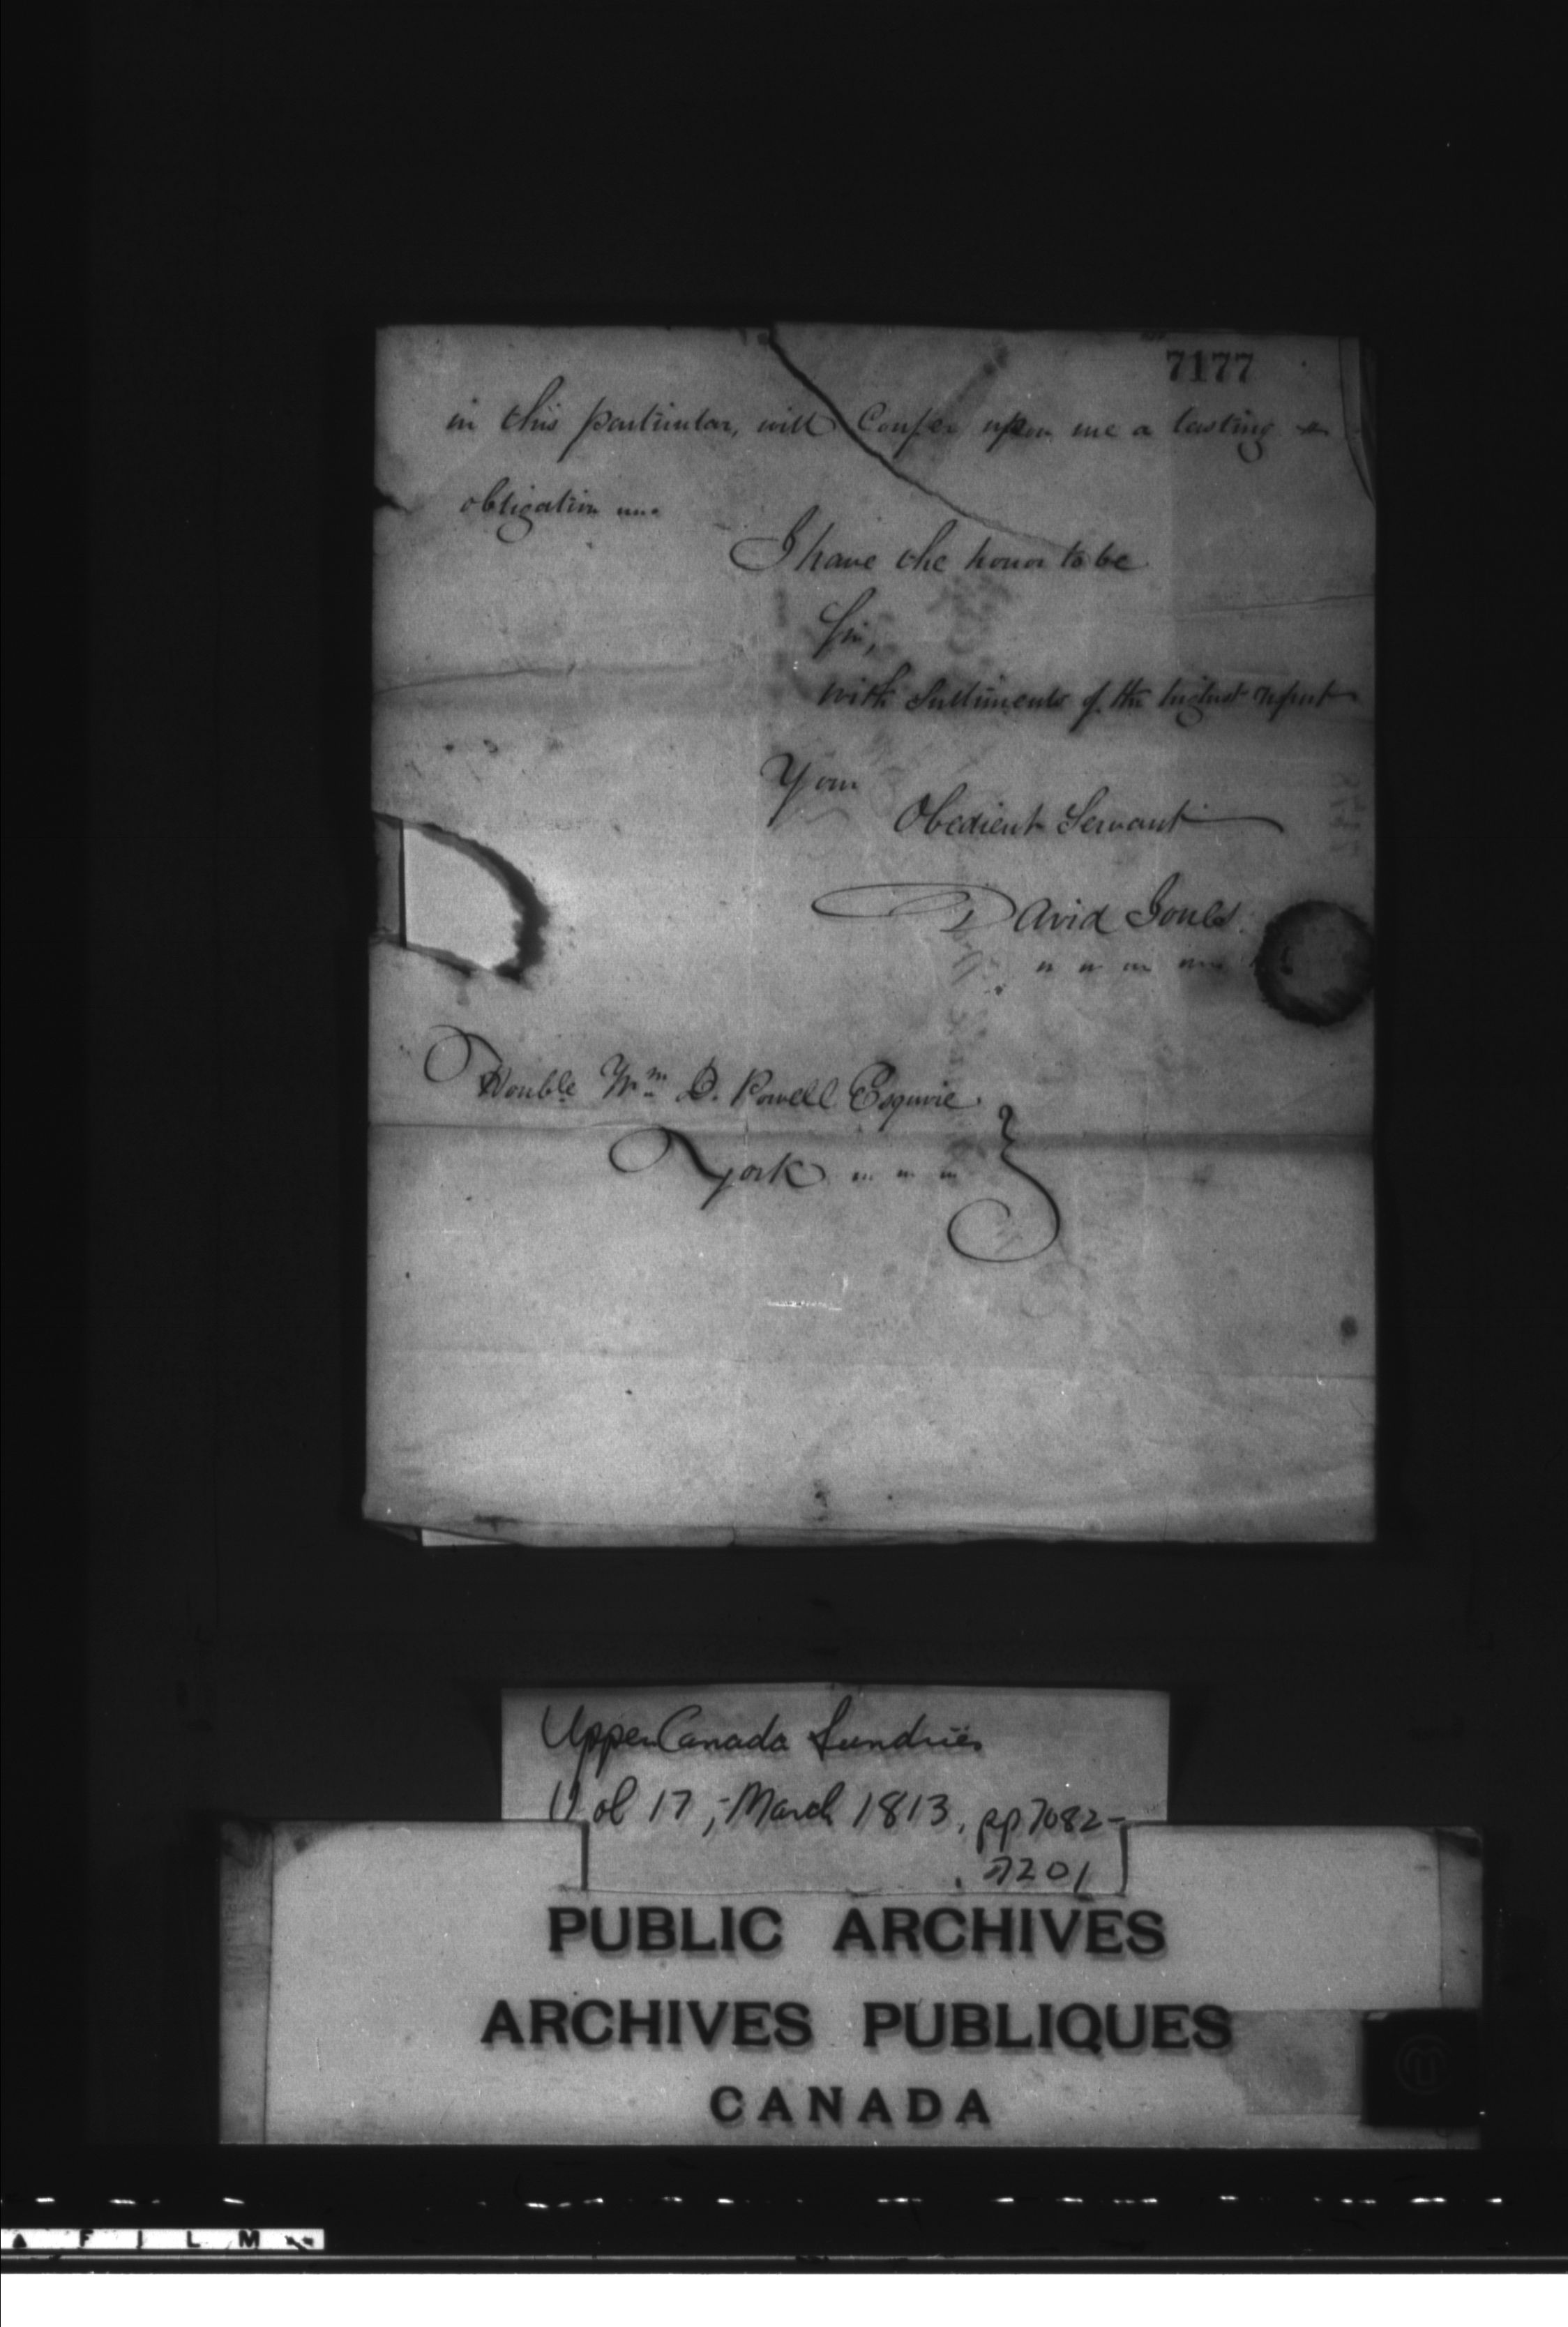 7177
in this particular, will Confer upon me a lasting
obligation
I have the honor to be
Sir,
with Sentiments of the highest respect
Your
Obedient Servant
David
Honble Wm D. Powell Esquire
York
Upper Canada Sundries
Vol 17, March 1813, pp 7082-
7201
PUBLIC ARCHIVES
ARCHIVES PUBLIQUES
CANADA
FILM